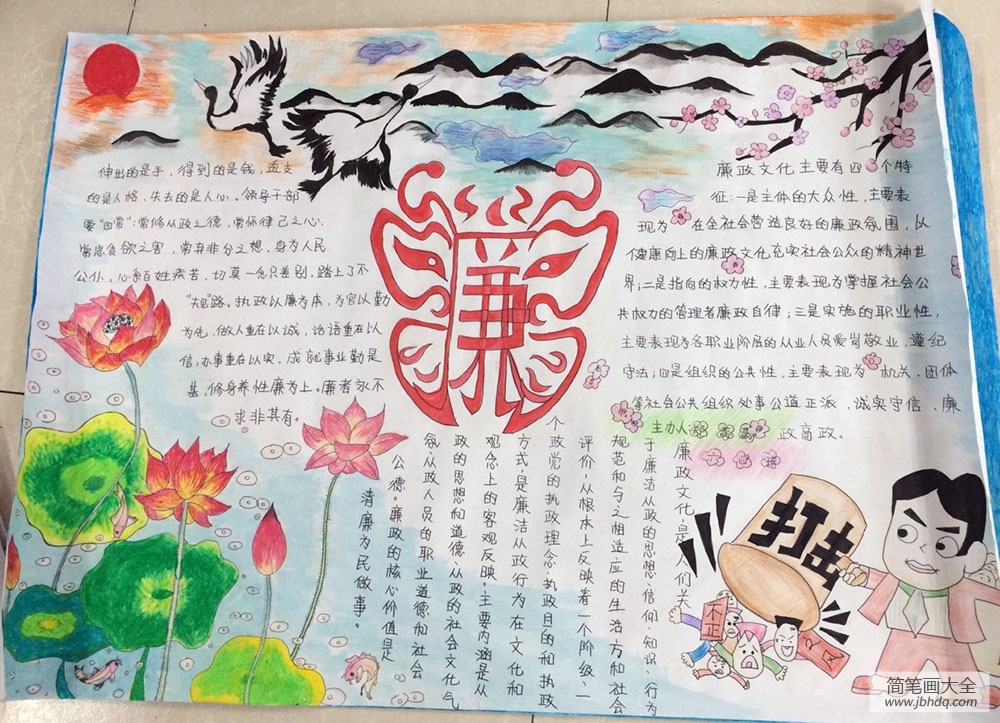 伸出的是手，得到的是钱，透支
的是人格，失去的是人心。领导干部
要"四常"：常修从政之德，常怀律己之心，
常思贪欲之害，常弃非分之想，身为人民
公仆，心系百姓疾苦，切莫一念只差别，踏上了不
"规路。执政以廉为本，为官以勤
为先，做人重在以诚，话语重在以
信，办事重在以实。成就事业勤是
基，修身养性廉为上。廉者永不
求非其有。
廉
廉政文化主要有四个特
征：一是主体的大众性，主要表
现为在全社会营造良好的廉政氛围，以
健康向上的廉政文化充实社会公众的精神世
界；二是指向的权力性，主要表现为掌握社会公
共权力的管理者廉政自律；三是实施的职业性，
主要表现为各职业阶层的从业人员爱岗敬业，遵纪
守法；四是组织的公共性，主要表现为机关、团体
等社会公共组织处事公道正派，诚实守信，廉
政高政。
主办人
廉政文化是人们关
于廉洁从政的思想、信仰、知识、行为
规范和与之相适应的生活方和社会
评价，从根本上反映着一个阶级、一
个政党的执政理念、执政目的和执政
方式，是廉洁从政行为在文化和
观念上的客观反映。主要内涵是从
政的思想和道德、从政的社会文化气
氛、从政人员的职业道德和社会
公德。廉政的核心价值是
清廉为民做事。
打击
不正
之风
简笔画大全
www.jbhdq.com